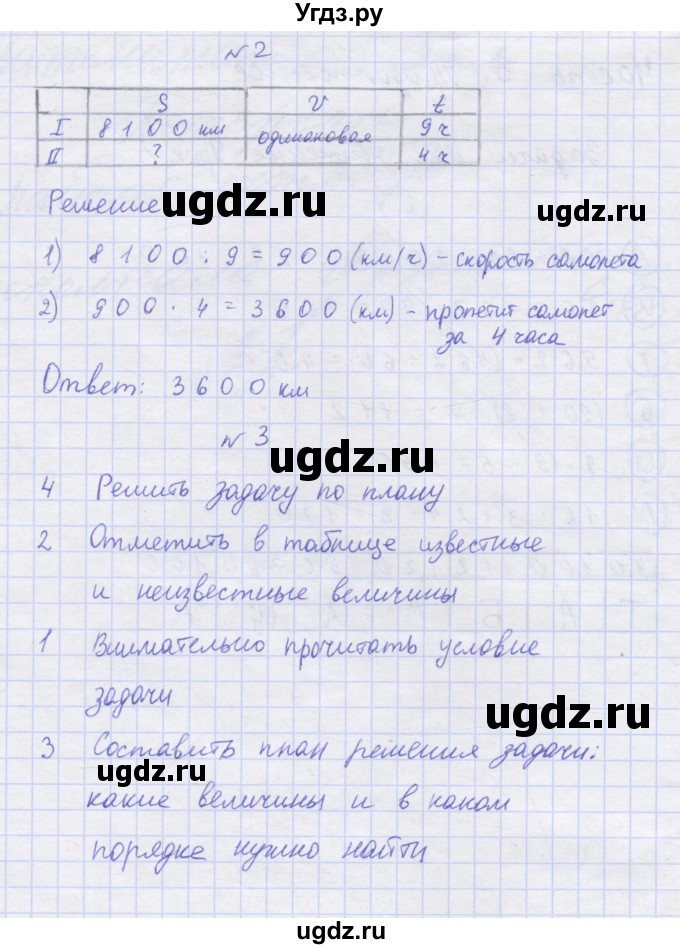 Угдз.ру
№2
S v t
I 8100 км одинаковая 9 ч
II ? 4 ч
Решение
ugdz.ru
1) 8100 : 9 = 900 (км/ч) - скорость самолета
2) 900 · 4 = 3600 (км) - пролетит самолет
за 4 часа
Ответ: 3600 км
№3
ugdz.ru
4 Решить задачу по плану
2 Отметить в таблице известные
и неизвестные величины
1 Внимательно прочитать условие
задачи
ugdz.ru
3 Составить план решения задачи:
ugdz.ru
какие величины и в каком
порядке нужно найти
ugdz.ru